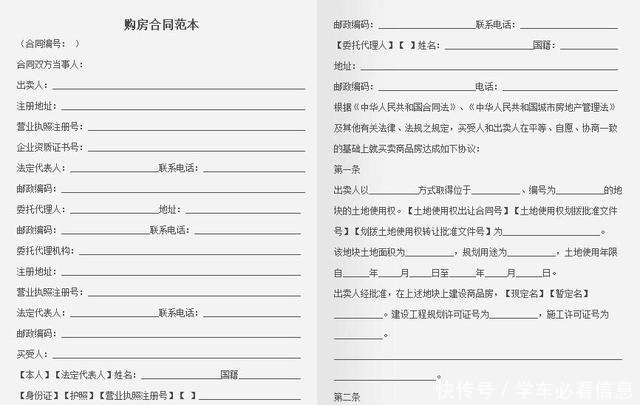 购房合同范本
（合同编号： ）
合同双方当事人：
出卖人：
注册地址：
营业执照注册号：
企业资质证书号：
法定代表人：联系电话：
邮政编码：
委托代理人：地址：
邮政编码：联系电话：
委托代理机构：
注册地址：
营业执照注册号：
法定代表人：联系电话：
邮政编码：
买受人：
【本人】【法定代表人】姓名：国籍
【身份证】【护照】【营业执照注册号】【 】
邮政编码：联系电话：
【委托代理人】【 】姓名：国籍：
地址：
邮政编码：电话：
根据《中华人民共和国合同法》、《中华人民共和国城市房地产管理法》
及其他有关法律、法规之规定，买受人和出卖人在平等、自愿、协商一致
的基础上就买卖商品房达成如下协议：
第一条
出卖人以方式取得位于、编号为的地
块的土地使用权。【土地使用权出让合同号】【土地使用权划拨批准文件
号】【划拨土地使用权转让批准文件号】为。
该地块土地面积为，规划用途为，土地使用年限
自年月日至年月日。
出卖人经批准，在上述地块上建设商品房，【现定名】【暂定名】
。建设工程规划许可证号为，施工许可证号为
。
。
第二条
快传号／学车必看信息